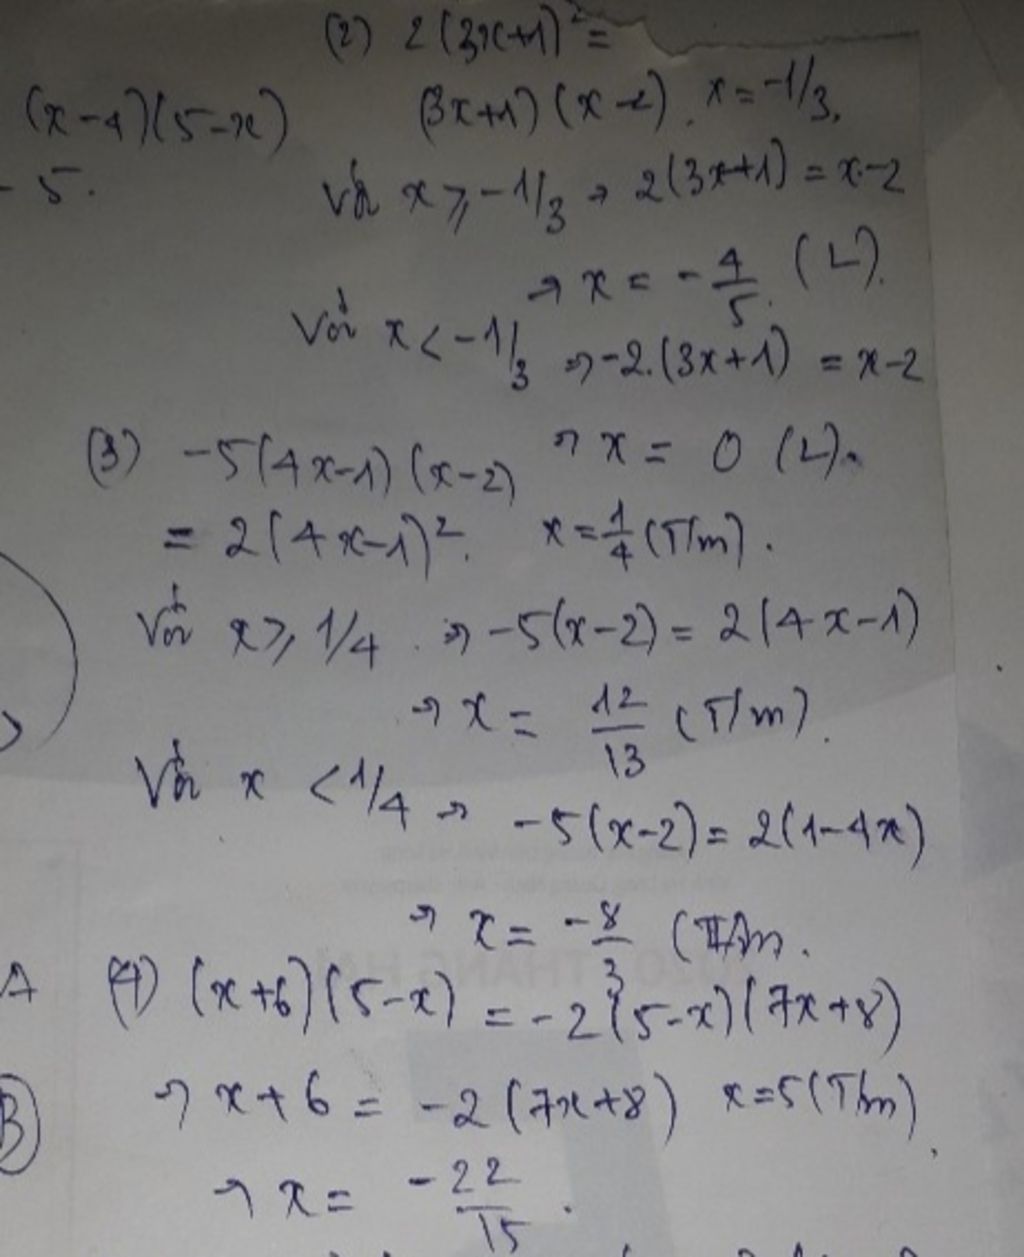 (2) 2(3x+1)² =
(x-4)(5-x)
(3x+1)(x-2). x=-1/3.
- 5.
Với x ≥ -1/3 → 2(3x+1) = x-2
→ x = -4/5. (L).
Với x < -1/3 → -2.(3x+1) = x-2
→ x = 0 (L).
(3) -5(4x-1)(x-2)
= 2(4x-1)². x = 1/4 (T/m).
Với x ≥ 1/4. → -5(x-2) = 2(4x-1)
→ x = 12/13 (T/m).
Với x < 1/4 → -5(x-2) = 2(1-4x)
→ x = -8/3 (T/m.
A
(4) (x+6)(5-x) = -2(5-x)(7x+8)
B
→ x+6 = -2(7x+8) x=5 (T/m)
→ x = -22/15.